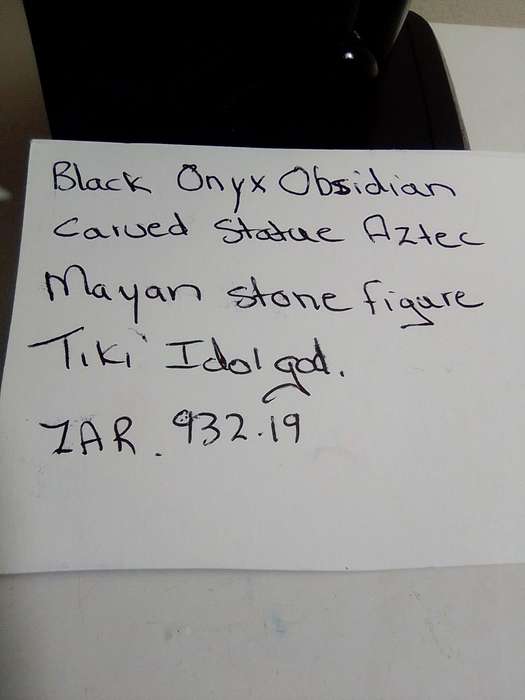 Black Onyx Obsidian
Carved Statue Aztec
Mayan stone figure
Tiki Idol god.
ZAR. 932.19